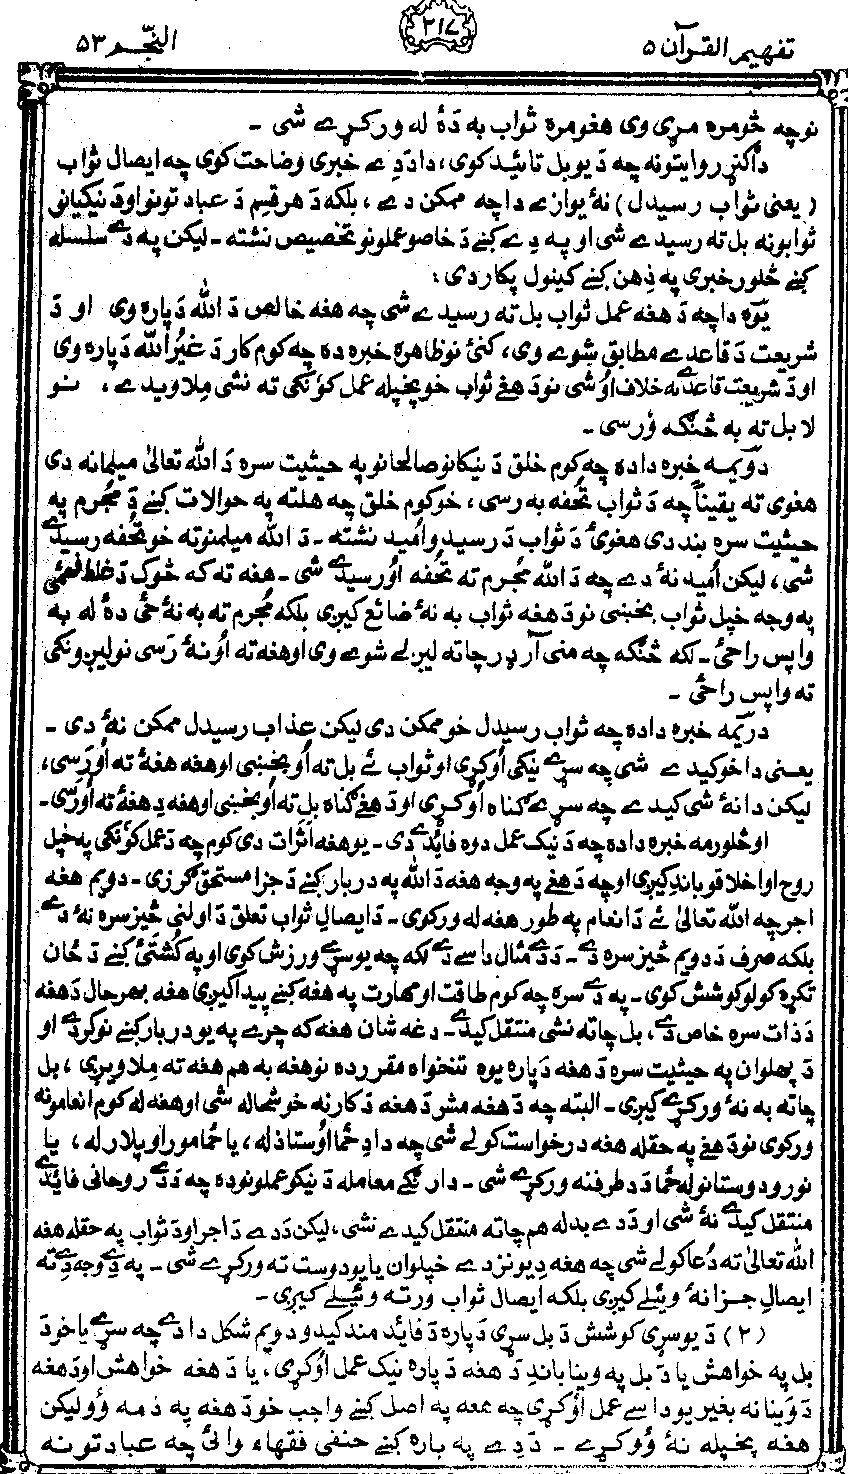 تفهیم القرآن ۵
۲۱۷
النجّم ۵۳
نو چه څومره مړی وی هغومره ثواب به دهٔ له ورکړے شی ۔
داګنړ روایتونه چه د یو بل تائید کوی، دا دد ے خبری وضاحت کوی چه ایصال ثواب
( یعنی ثواب رسیدل ) نهٔ یوازے دا چه ممکن دے ، بلکه د هر قسم د عبادتونو او د نیکیانو
ثوابونه بل ته رسیدے شی او په دے کښے د خاصو عملونو تخصیص نشته ۔ لیکن په دے سلسله
کښے څلور خبری په ذهن کښے کینول پکار دی ؛
یوه دا چه د هغه عمل ثواب بل ته رسیدے شی چه هغه خالص د الله دپاره وی او د
شریعت د قاعدے مطابق شوے وی، کنیٔ نو ظاهره خبره ده چه کوم کار د غیرُ الله دپاره وی
او د شریعت قاعدے به خلاف اوشی نو د هغے ثواب خو خپله عمل کوٰنکی ته نشی ملاویدے ، نو
لا بل ته به څنګه وٗرسی ۔
دوٗیمه خبره داده چه کوم خلق د نیکانو صالحانو په حیثیت سره د الله تعالیٰ میلمانه دی
هغوی ته یقیناً چه د ثواب تحُفه به رسی ، خو کوم خلق چه هلته په حوالات کښے د مجُرم په
حیثیت سره بند دی هغویٔ د ثواب د رسید و اُمید نشته ۔ د الله میلمنو ته خو تحُفه رسیدے
شی، لیکن اُمید نهٔ دے چه د الله مجُرم ته تحُفه اوٗرسیدے شی ۔ هغه ته که څوک د غلط فهمیٔ
په وجه خپل ثواب بخښی نو د هغه ثواب به نهٔ ضائع کیږی بلکه مُجرم ته به نهٔ ځیٔ دهٔ له به
واپس راځیٔ ۔ لکه څنګه چه منی آرډر چاته لیږلے شوے وی او هغه ته اوٗنهٔ رَسی نو لیږونکی
ته واپس راځیٔ ۔
دریٔمه خبره داده چه ثواب رسیدل خو ممکن دی لیکن عذاب رسیدل ممکن نهٔ دی ۔
یعنی دا خو کیدے شی چه سړے نیکی اوٗکړی او ثواب ئے بل ته اوٗبخښی او هغه هغهٔ ته اوٗرَسی،
لیکن دا نهٔ شی کیدے چه سړے ګناه اوٗکړی او د هغے ګناه بل ته اوٗبخښی او هغه د هغهٔ ته اوٗرسی ۔
او څلورمه خبره داده چه د نیک عمل دوه فائدے دی ۔ یو هغه اثرات دی کوم چه د عمل کوٗنکی په خپل
روح او اخلاقو باندِ کیږی او چه د هغے په وجه هغه د الله په دربار کښے د جزا مستحق ګرزی ۔ دویم هغه
اجر چه الله تعالیٰ ئے د انعام په طور هغه له ورکوی ۔ د ایصالِ ثواب تعلق د اولنی څیز سره نهٔ دے
بلکه صرف د دویم څیز سره دے ۔ ددے مثال داسے دے لکه چه یو سړے ورزش کوی او په کُشتیٔ کښے د ځان
تکړه کولو کوشش کوی ۔ په دے سره چه کوم طاقت او مهارت په هغه کښے پیدا کیږی هغه بهرحال د هغه
د ذات سره خاص دے، بل چاته نشی منتقل کیدے ۔ دغه شان هغه که چرے په یو دربار کښے نوکر دے او
د پهلوان په حیثیت سره د هغه دپاره یوه تنخواه مقرر ده نو هغه به هم هغه ته ملاویږی ، بل
چاته به نهٔ ورکړے کیږی ۔ البته چه د هغه مشر د هغه د کار نه خوشحاله شی او هغه له کوم انعامونه
ورکوی نو د هغے په حقله هغه درخواست کولے شی چه دا دِ ځما اوٗستاذ له ، یا ځما مور او پلار له ، یا
نورو دوستانو له ځما د طرفنه ورکړے شی ۔ دارنګے معامله د نیکو عملونو ده چه ددے روحانی فائدے
منتقل کیدے نهٔ شی او ددے بدله هم چاته منتقل کیدے نشی، لیکن ددے د اجر او د ثواب په حقله هغه
الله تعالیٰ ته دُعا کولے شی چه هغه دِ یو نزدے خپلوان یا یو دوست ته ورکړے شی ۔ په دے وجه دے ته
ایصالِ جزا نهٔ ویٔلے کیږی بلکه ایصالِ ثواب ورته ویٔیلے کیږی ۔
(۲) د یو سړی کوشش د بل سړی دپاره د فائده مند کیدو دویم شکل دا دے چه سړے یا خو د
بل په خواهش یا د بل په وینا باندِ د هغه دپاره نیک عمل اوٗکړی ، یا د هغه خواهش او د هغه
د وینا نه بغیر یو داسے عمل اوٗکړی چه هغه په اصل کښے واجب خو د هغه په ذمه وٗو لیکن
هغه پخپله نهٔ وٗو کړے ۔ ددے په باره کښے حنفی فقهاء وائیٔ چه عبادتونه